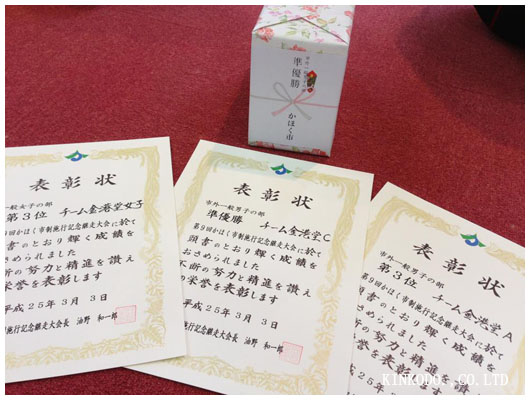 市外一般男子の部
準優勝
かほく市
表彰状
一般女子の部
第3位 チーム金港堂女子
第9回かほく市制施行記念継走大会に於て
頭書のとおり輝く成績を
おさめられました
断の努力と精進を讃え
栄誉を表彰します
平成25年3月3日
制施行記念継走大会長 油野 和一郎
表彰状
市外一般男子の部
準優勝 チーム金港堂C
第9回かほく市制施行記念継走大会に於て
頭書のとおり輝く成績を
おさめられました
不断の努力と精進を讃え
の栄誉を表彰します
平成25年3月3日
市制施行記念継走大会長 油野 和一郎
表彰状
市外一般男子の部
第3位 チーム金港堂A
第9回かほく市制施行記念継走大会に於て
頭書のとおり輝く成績を
おさめられました
断の努力と精進を讃え
栄誉を表彰します
平成25年3月3日
KINKODO.,CO.LTD